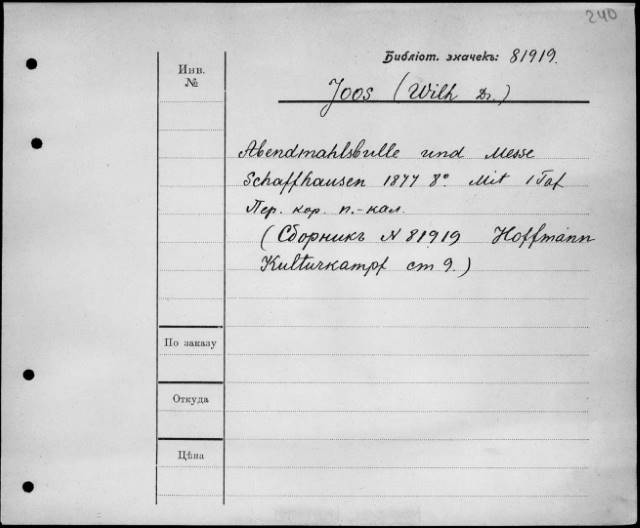 240
Библіот. значекъ: 81919.
Инв.
№
Joos (Wilh Dr.)
Abendmahlsbulle und Messe
Schaffhausen 1877 8° Mit 1 Taf
Пер. кор. п.-кал.
(Сборникъ N 81919 Hoffmann
Kulturkampf ст 9.)
По заказу
Откуда
Цѣна